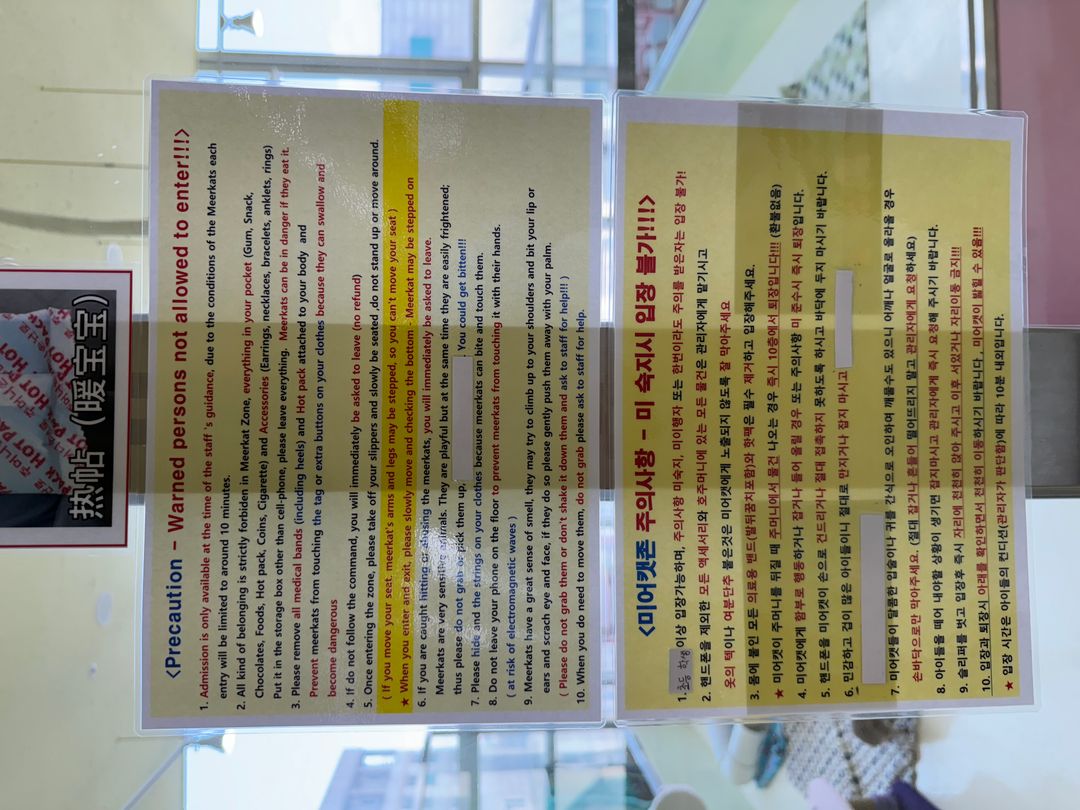 주머니난로
HOT PACK
HOT PACK
热帖 (暖宝宝)
<Precaution - Warned persons not allowed to enter!!!>
1. Admission is only available at the time of the staff 's guidance, due to the conditions of the Meerkats each
entry will be limited to around 10 minutes.
2. All kind of belonging is strictly forbiden in Meerkat Zone, everything in your pocket (Gum, Snack,
Chocolates, Foods, Hot pack, Coins, Cigarette) and Accessories (Earrings, necklaces, bracelets, anklets, rings)
Put it in the storage box other than cell-phone, please leave everything. Meerkats can be in danger if they eat it.
3. Please remove all medical bands (including heels) and Hot pack attached to your body and
Prevent meerkats from touching the tag or extra buttons on your clothes because they can swallow and
become dangerous
4. If do not follow the command, you will immediately be asked to leave (no refund)
5. Once entering the zone, please take off your slippers and slowly be seated ,do not stand up or move around.
( If you move your seat. meerkat's arms and legs may be stepped, so you can't move your seat )
★ When you enter and exit, please slowly move and checking the bottom - Meerkat may be stepped on
6. If you are caught hitting or abusing the meerkats, you will immediately be asked to leave.
Meerkats are very sensitive animals. They are playful but at the same time they are easily frightened;
thus please do not grab or pick them up, . You could get bitten!!!
7. Please hide and the strings on your clothes because meerkats can bite and touch them.
8. Do not leave your phone on the floor to prevent meerkats from touching it with their hands.
( at risk of electromagnetic waves )
9. Meerkats have a great sense of smell, they may try to climb up to your shoulders and bit your lip or
ears and scrach eye and face, if they do so please gently push them away with your palm.
( Please do not grab them or don't shake it down them and ask to staff for help!!! )
10. When you do need to move them, do not grab please ask to staff for help.
<미어캣존 주의사항 - 미 숙지시 입장 불가!!!>
1. 초등 학생 이상 입장가능하며, 주의사항 미숙지, 미이행자 또는 한번이라도 주의를 받은자는 입장 불가!
2. 핸드폰을 제외한 모든 액세서리와 호주머니에 있는 모든 물건은 관리자에게 맡기시고
옷의 텍이나 여분단추 붙은것은 미어캣에게 노출되지 않도록 잘 막아주세요
3. 몸에 붙인 모든 의료용 밴드(발뒤꿈치포함)와 핫팩은 필수 제거하고 입장해주세요.
★ 미어캣이 주머니를 뒤질 때 주머니에서 물건 나오는 경우 즉시 10층에서 퇴장입니다!!! (환불없음)
4. 미어캣에게 함부로 행동하거나 잡거나 들어 올릴 경우 또는 주의사항 미 준수시 즉시 퇴장입니다.
5. 핸드폰을 미어캣이 손으로 건드리거나 절대 접촉하지 못하도록 하시고 바닥에 두지 마시기 바랍니다.
6. 민감하고 겁이 많은 아이들이니 절대로 만지거나 잡지 마시고
7. 미어캣들이 달콤한 입술이나 귀를 간식으로 오인하여 깨물수도 있으니 어깨나 얼굴로 올라올 경우
손바닥으로만 막아주세요. (절대 잡거나 흔들어 떨어뜨리지 말고 관리자에게 요청하세요)
8. 아이들을 떼어 내야할 상황이 생기면 잡지마시고 관리자에게 즉시 요청해 주시기 바랍니다.
9. 슬리퍼를 벗고 입장후 즉시 자리에 천천히 앉아 주시고 이후 서있거나 자리이동 금지!!!
10. 입장과 퇴장시 아래를 확인하면서 천천히 이동하시기 바랍니다 , 미어캣이 밟힐 수 있음!!!
★ 입장 시간은 아이들의 컨디션(관리자가 판단함)에 따라 10분 내외입니다.